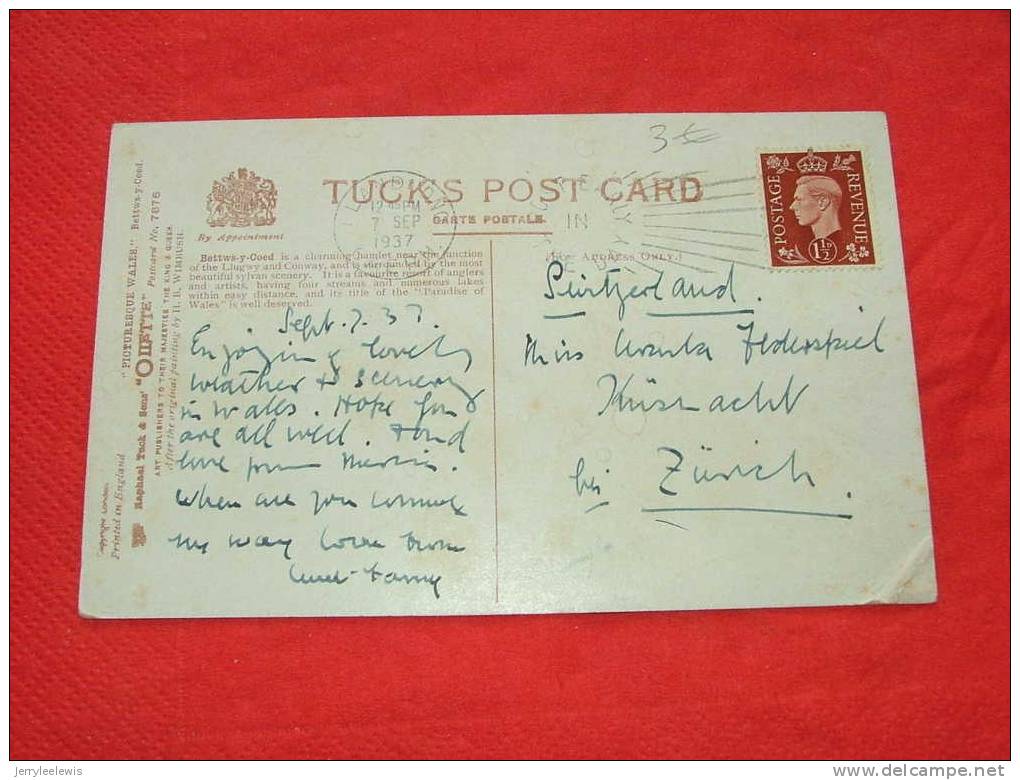 3
TUCK'S POST CARD
CARTE POSTALE.
By Appointment
12 PM
7 SEP
1937
IN
POSTAGE
REVENUE
1½D
Bettws-y-Coed is a charming hamlet near the junction
of the Llugwy and Conway, and is surrounded by the most
beautiful sylvan scenery. It is a favourite resort of anglers
and artists, having four streams and numerous lakes
within easy distance, and its title of the "Paradise of
Wales" is well deserved.
(For Address Only.)
"PICTURESQUE WALES." Bettws-y-Coed.
Raphael Tuck & Sons' "OILETTE" Postcard No. 7876
ART PUBLISHERS TO THEIR MAJESTIES THE KING & QUEEN.
After the original painting by H. B. WIMBUSH.
Copyright London
Printed in England
Sept. 7. 37.
Enjoying lovely
weather & scenery
in Wales. Hope you
are all well. Fond
love from
When are you coming
my way love from
Switzerland.
Miss Ursula Federspiel
Küsnacht
bei Zürich.
jerryleelewis
delcampe.net